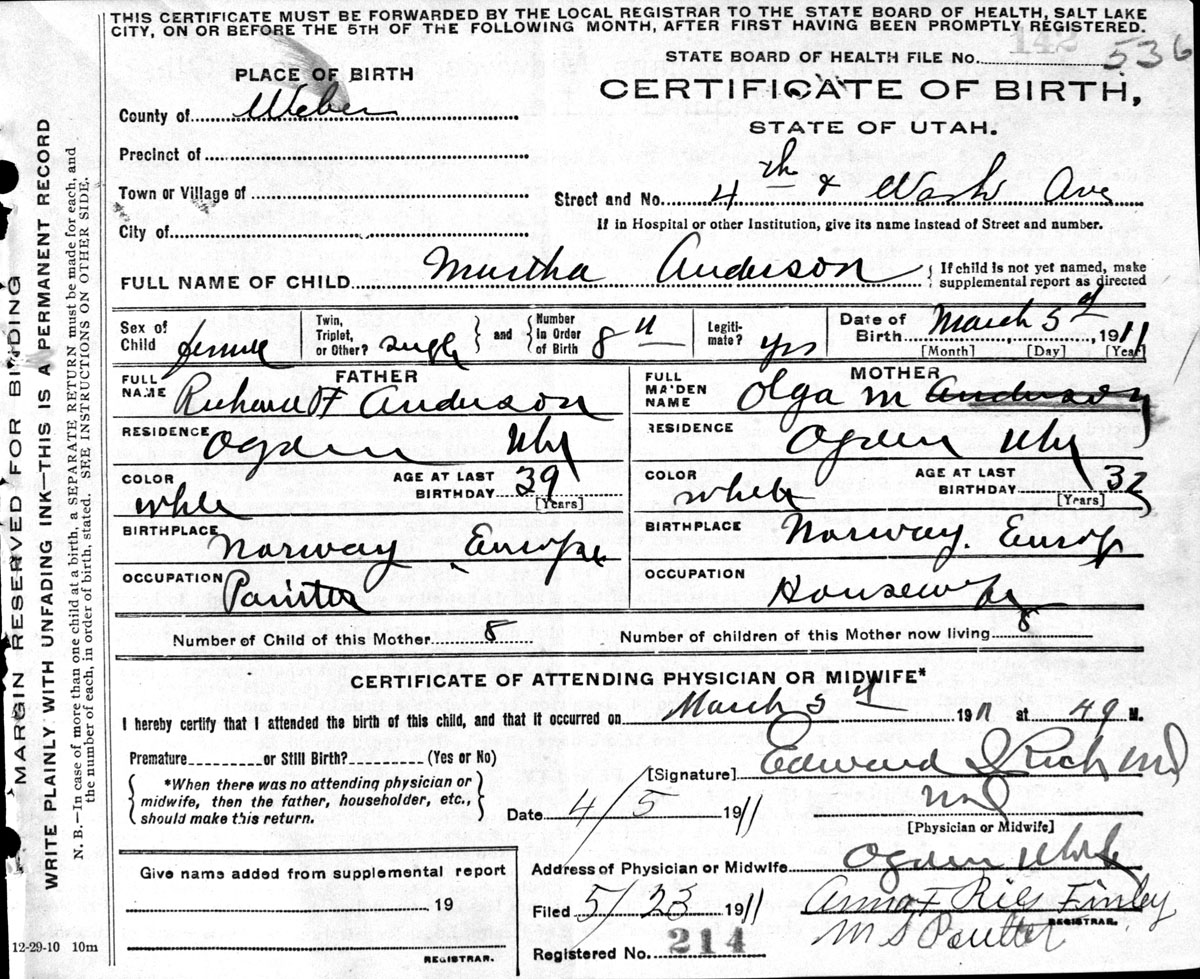 THIS CERTIFICATE MUST BE FORWARDED BY THE LOCAL REGISTRAR TO THE STATE BOARD OF HEALTH, SALT LAKE
CITY, ON OR BEFORE THE 5TH OF THE FOLLOWING MONTH, AFTER FIRST HAVING BEEN PROMPTLY REGISTERED.
142
STATE BOARD OF HEALTH FILE NO. 536
PLACE OF BIRTH
CERTIFICATE OF BIRTH,
County of Weber
STATE OF UTAH.
Precinct of
Town or Village of
Street and No. 4th & Wash Ave
City of
If in Hospital or other Institution, give its name instead of Street and number.
FULL NAME OF CHILD Murtha Anderson { If child is not yet named, make
supplemental report as directed
Sex of Child female
Twin, Triplet, or Other? single } and { Number in Order of Birth 8th
Legiti-mate? yes
Date of Birth March 5th 1911
[Month] [Day] [Year]
FATHER
FULL NAME Richard F Anderson
RESIDENCE Ogden Utah
COLOR white
AGE AT LAST BIRTHDAY 39 [Years]
BIRTHPLACE Norway Europe
OCCUPATION Painter
MOTHER
FULL MAIDEN NAME Olga M Anderson
RESIDENCE Ogden Utah
COLOR white
AGE AT LAST BIRTHDAY 32 [Years]
BIRTHPLACE Norway. Europ
OCCUPATION Housewife
Number of Child of this Mother 8
Number of children of this Mother now living 8
CERTIFICATE OF ATTENDING PHYSICIAN OR MIDWIFE*
I hereby certify that I attended the birth of this child, and that it occurred on March 5th 1911 at M.
Premature or Still Birth? (Yes or No)
[Signature] Edward I Rich MD
{ *When there was no attending physician or
midwife, then the father, householder, etc.,
should make this return. }
Date 4/5 1911
[Physician or Midwife]
Address of Physician or Midwife Ogden Utah
Give name added from supplemental report
19
REGISTRAR.
Filed 5/23 1911
Anna F Finley
REGISTRAR.
M S
Registered No. 214
12-29-10 10m
MARGIN RESERVED FOR BINDING
WRITE PLAINLY WITH UNFADING INK—THIS IS A PERMANENT RECORD
N. B.—In case of more than one child at a birth, a SEPARATE RETURN must be made for each, and
the number of each, in order of birth, stated. SEE INSTRUCTIONS ON OTHER SIDE.